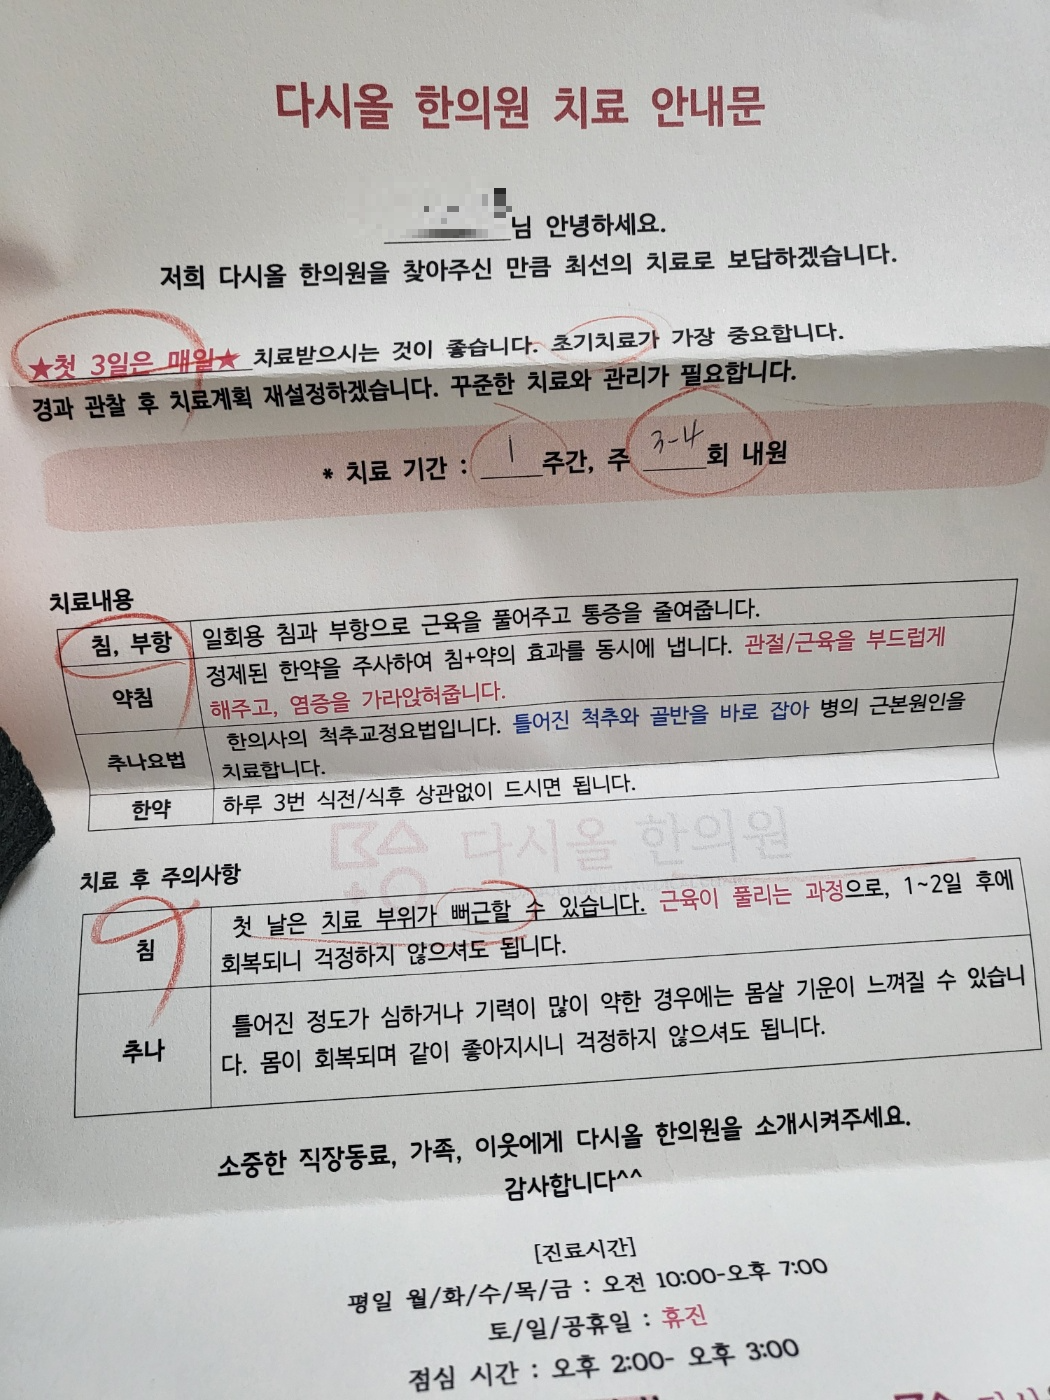 다시올 한의원 치료 안내문
님 안녕하세요.
저희 다시올 한의원을 찾아주신 만큼 최선의 치료로 보답하겠습니다.
★첫 3일은 매일★ 치료받으시는 것이 좋습니다. 초기치료가 가장 중요합니다.
경과 관찰 후 치료계획 재설정하겠습니다. 꾸준한 치료와 관리가 필요합니다.
* 치료 기간 : 1 주간, 주 3-4 회 내원
치료내용
침, 부항 일회용 침과 부항으로 근육을 풀어주고 통증을 줄여줍니다.
약침 정제된 한약을 주사하여 침+약의 효과를 동시에 냅니다. 관절/근육을 부드럽게
해주고, 염증을 가라앉혀줍니다.
추나요법 한의사의 척추교정요법입니다. 틀어진 척추와 골반을 바로 잡아 병의 근본원인을
치료합니다.
한약 하루 3번 식전/식후 상관없이 드시면 됩니다.
다시올 한의원
치료 후 주의사항
침 첫 날은 치료 부위가 뻐근할 수 있습니다. 근육이 풀리는 과정으로, 1~2일 후에
회복되니 걱정하지 않으셔도 됩니다.
추나 틀어진 정도가 심하거나 기력이 많이 약한 경우에는 몸살 기운이 느껴질 수 있습니
다. 몸이 회복되며 같이 좋아지시니 걱정하지 않으셔도 됩니다.
소중한 직장동료, 가족, 이웃에게 다시올 한의원을 소개시켜주세요.
감사합니다^^
[진료시간]
평일 월/화/수/목/금 : 오전 10:00-오후 7:00
토/일/공휴일 : 휴진
점심 시간 : 오후 2:00- 오후 3:00